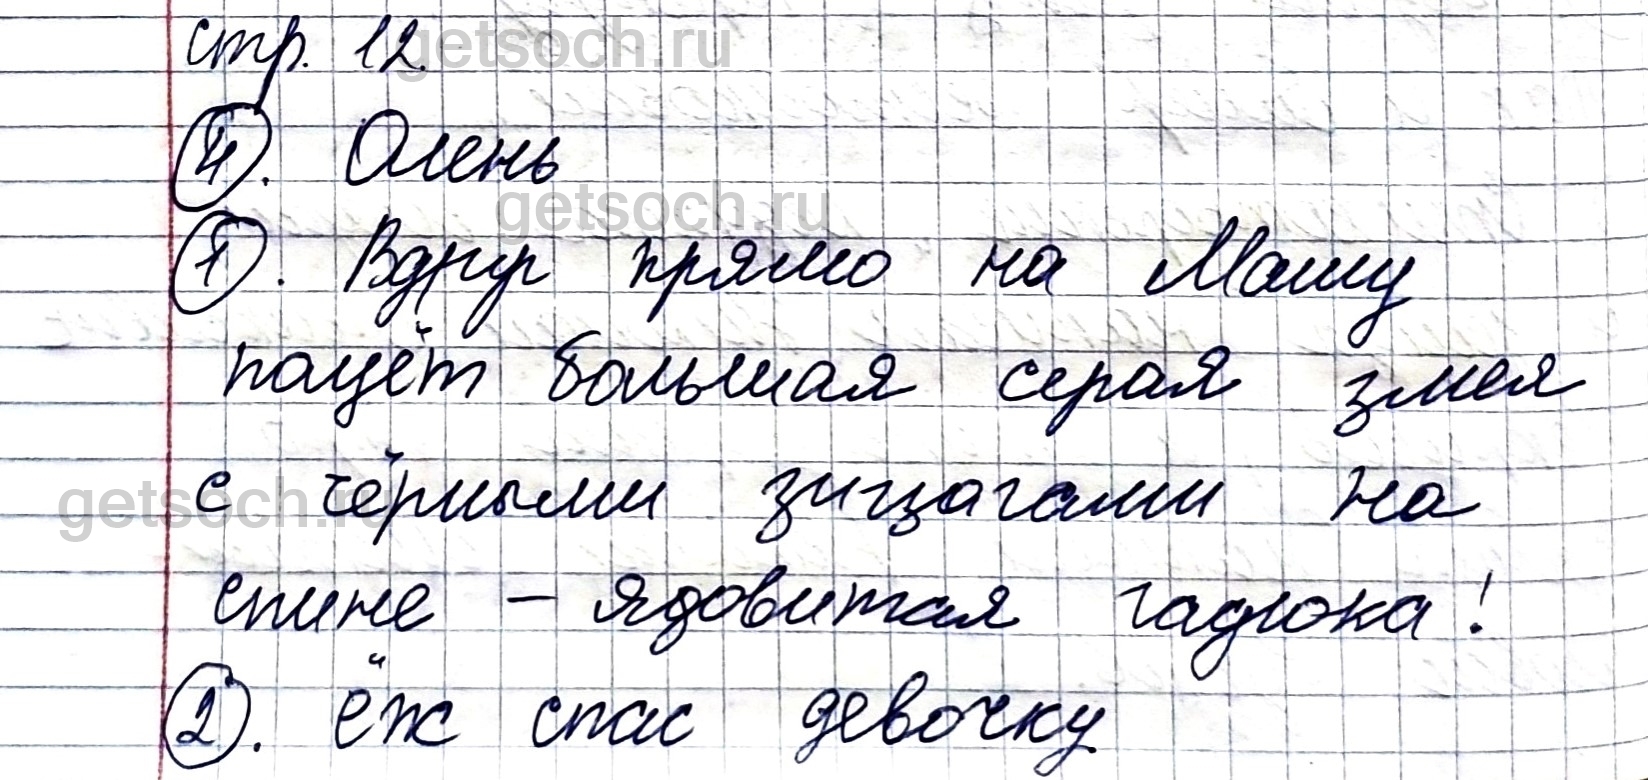 стр. 12.
getsoch.ru
4. Олень
getsoch.ru
1. Вдруг прямо на Машу
ползёт большая серая змея
с чёрными зигзагами на
getsoch.ru
спине – ядовитая гадюка!
2. ёж спас девочку